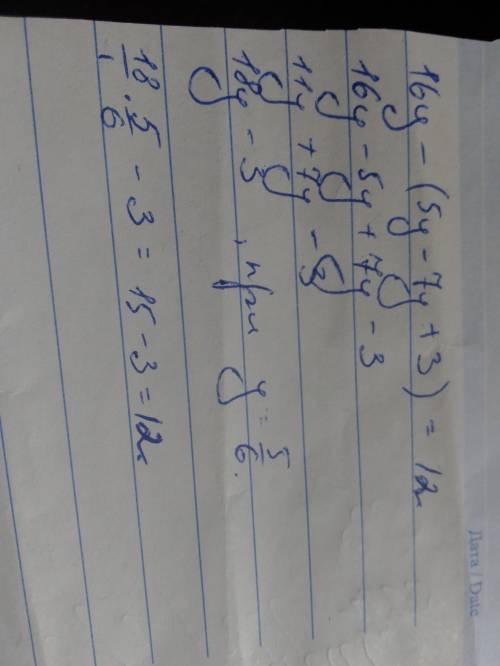 Дата / Date
16y - (5y - 7y + 3) = 12
16y - 5y + 7y - 3
11y + 7y - 3
18y - 3, при y = 5/6.
18/1 · 5/6 - 3 = 15 - 3 = 12